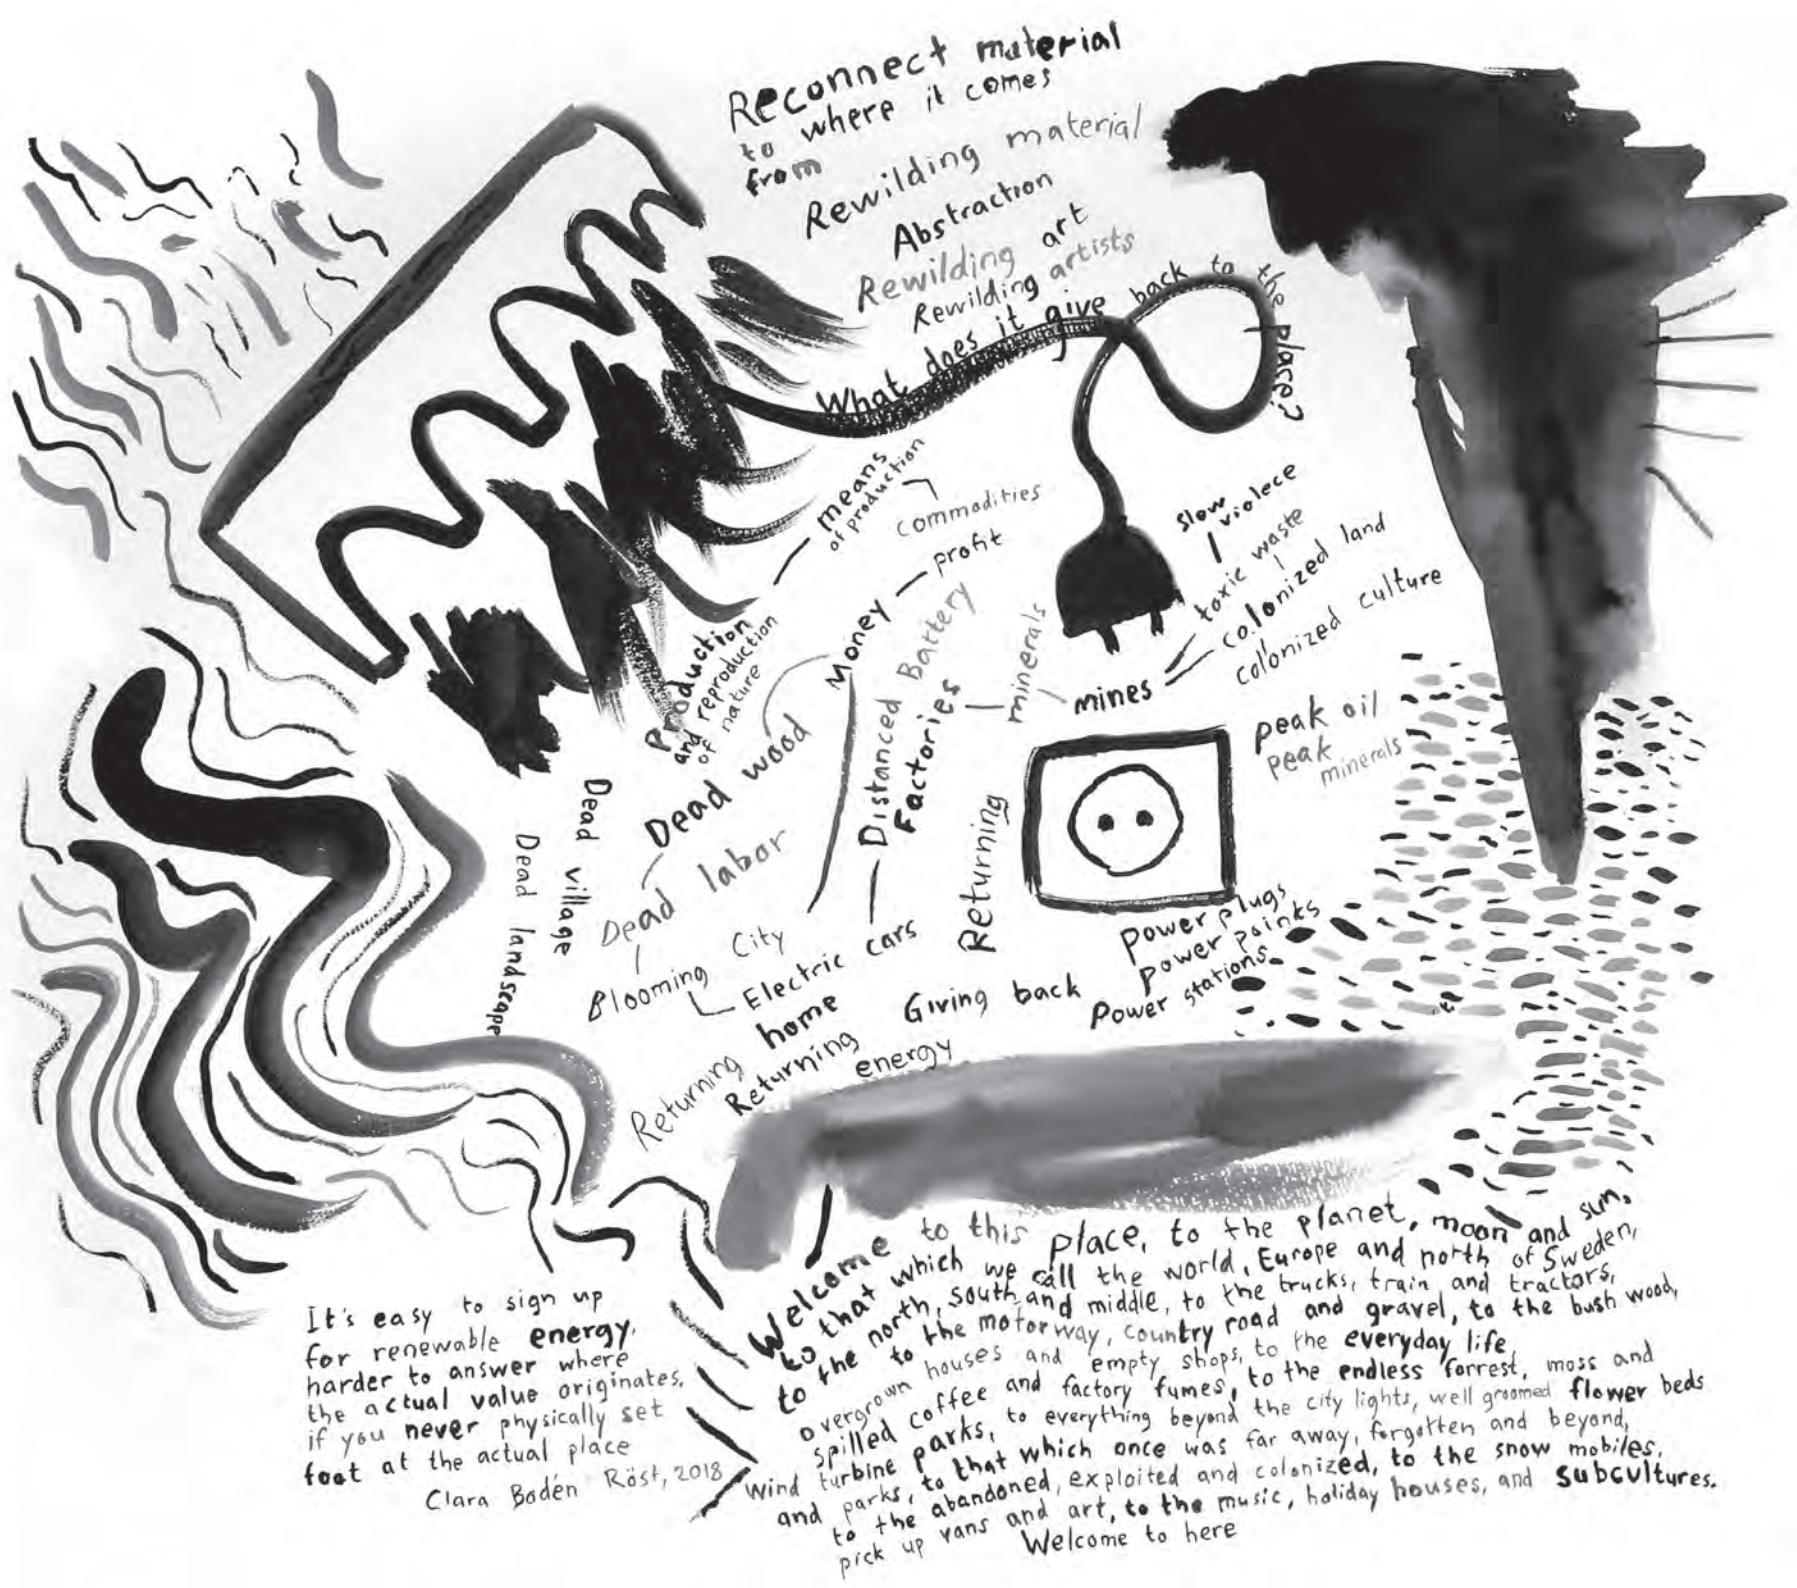 Reconnect material
to where it comes
from
Rewilding material
Abstraction
Rewilding art
Rewilding artists
What does it give back to the place?
means
of production
commodities
profit
Money
Production
and reproduction
of nature
Dead wood
Dead labor
Dead village
Dead landscape
Blooming City
Electric cars
Distanced Battery
Factories
minerals
mines
slow
violece
toxic waste
colonized land
colonized culture
peak oil
peak
minerals
Returning
power plugs
power points
Power stations
Giving back
home
Returning
Returning
energy
It's easy to sign up
for renewable energy,
harder to answer where
the actual value originates,
if you never physically set
foot at the actual place
Clara Bodén Röst, 2018
Welcome to this place, to the planet, moon and sun,
to that which we call the world, Europe and north of Sweden,
to the north, south and middle, to the trucks, train and tractors,
to the motorway, country road and gravel, to the bush wood,
overgrown houses and empty shops, to the everyday life,
spilled coffee and factory fumes, to the endless forrest, moss and
wind turbine parks, to everything beyond the city lights, well groomed flower beds
and parks, to that which once was far away, forgotten and beyond,
to the abandoned, exploited and colonized, to the snow mobiles,
pick up vans and art, to the music, holiday houses, and subcultures.
Welcome to here